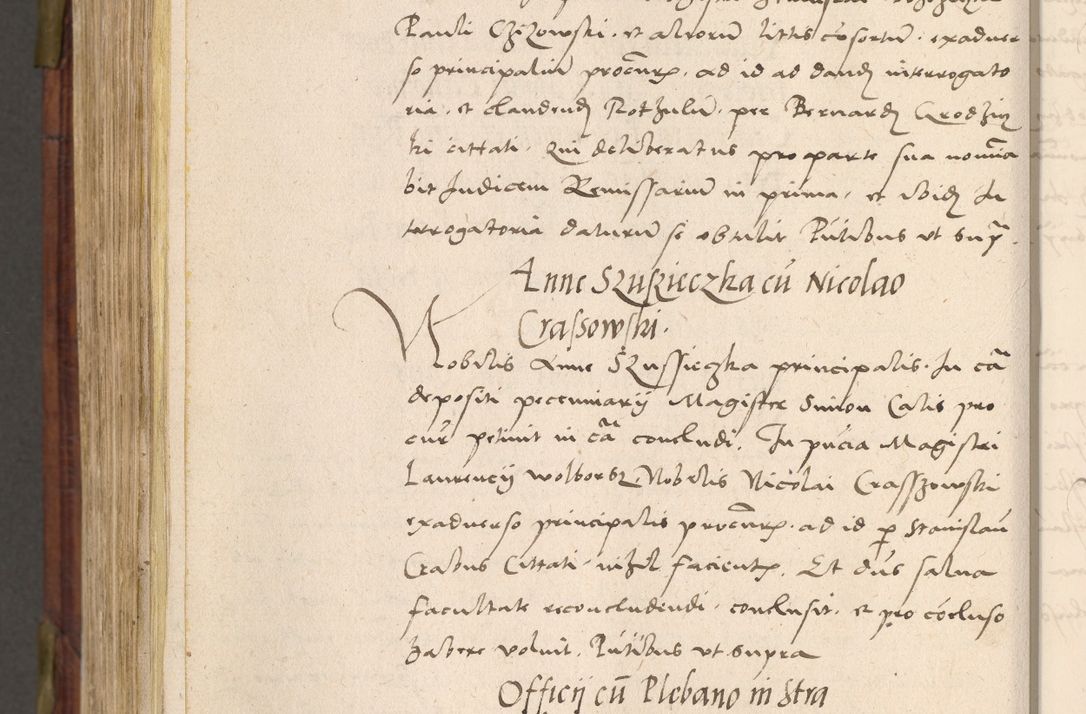 Pauli Czizowski · et aliorū littis cōsortū · exaduer
so principaliū procūr · ad id ad dand interrogato
ria · et claudend Rotzulū · per Bernard Grodziczy
ki cittati · Qui deliberatus pro parte sua nomīa
bit Judicem Remissariū in prima · et ibid In
terrogatoria daturū se obtulit Pūtibus ut Sup̄
Anne Szuszieczka cū Nicolao
Crassowski ·
Nobilis Anne Szussieczka principalis · In cā
depositi peccuniarij Magister Simon Calis pro
cur̄ petiuit in cā concludi · In pn̄cia Magistri
Laurencij wolborsz Nobilis Nicolai Crasszowski
exaduerso principalis procūr · ad id p Stanislau
Crabus Cittati · nihil facient · Et dn̄s salua
facultate reconcludendi · conclusit · et pro cōcluso
habere voluit · Pūtibus ut supra
Officij cū Plebano in Stra